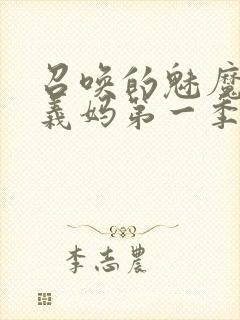 召唤的魅魔
义妈第一季
李志农